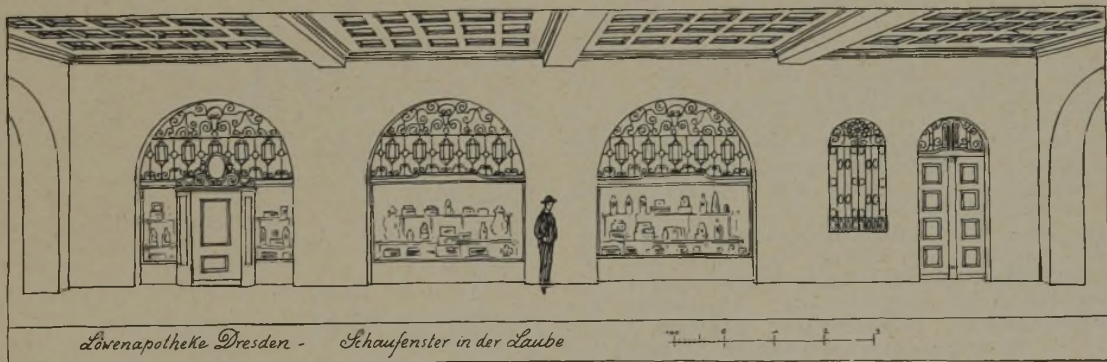 Löwenapotheke Dresden - Schaufenster in der Laube